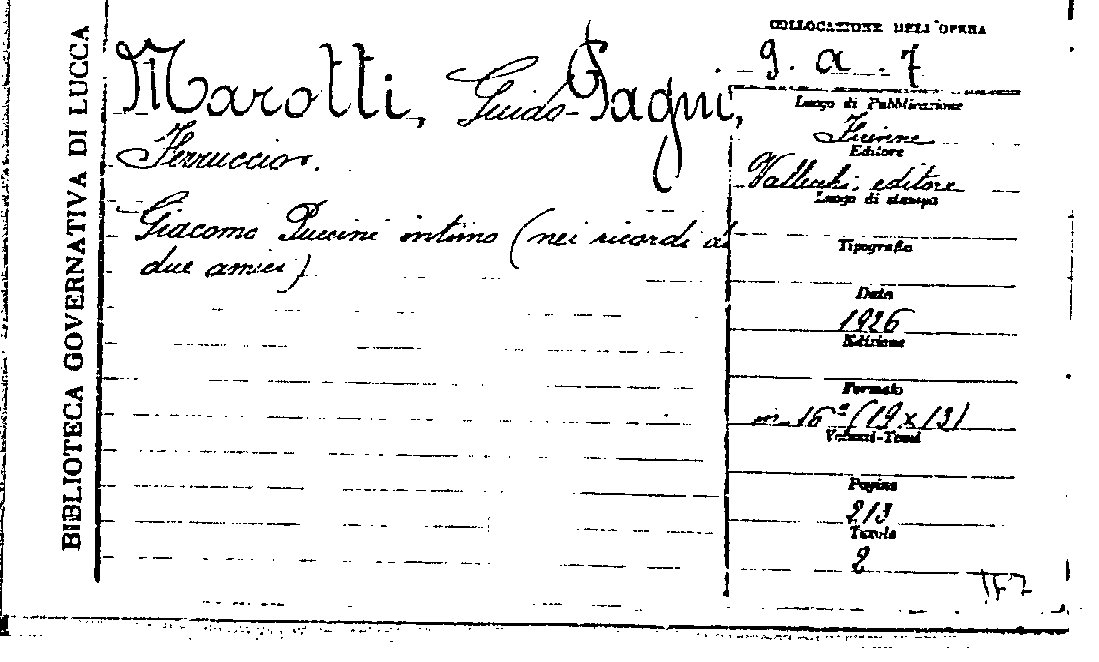 BIBLIOTECA GOVERNATIVA DI LUCCA
Marotti, Guido - Pagni,
Ferruccio.
Giacomo Puccini intimo (nei ricordi di
due amici)
COLLOCAZIONE DELL'OPERA
9. a. 7
Luogo di Pubblicazione
Firenze
Editore
Vallecchi, editore
Luogo di stampa
Tipografia
Data
1926
Edizione
Formato
in 16° (19 x 13)
Volumi-Tomi
Pagine
213
Tavole
2